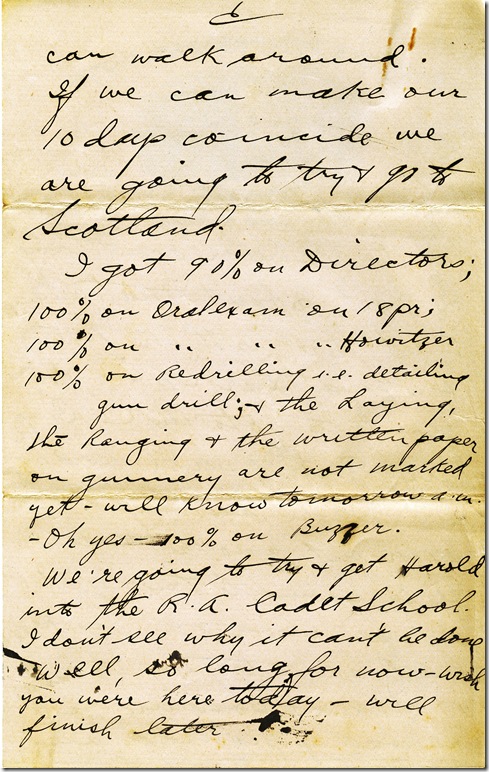 6
can walk around.
If we can make our
10 days coincide we
are going to try & go to
Scotland.
I got 90% on Directors;
100% on Oral exam on 18 pr;
100% on " " " Howitzer
100% on Redrilling i.e. detailing
gun drill; & the Laying,
the Ranging & the written paper
on gunnery are not marked
yet - will know tomorrow a.m.
- Oh yes - 100% on Buzzer.
We're going to try & get Harold
into the R.A. Cadet School.
I don't see why it can't be done
Well, so long for now - wish
you were here today - will
finish later